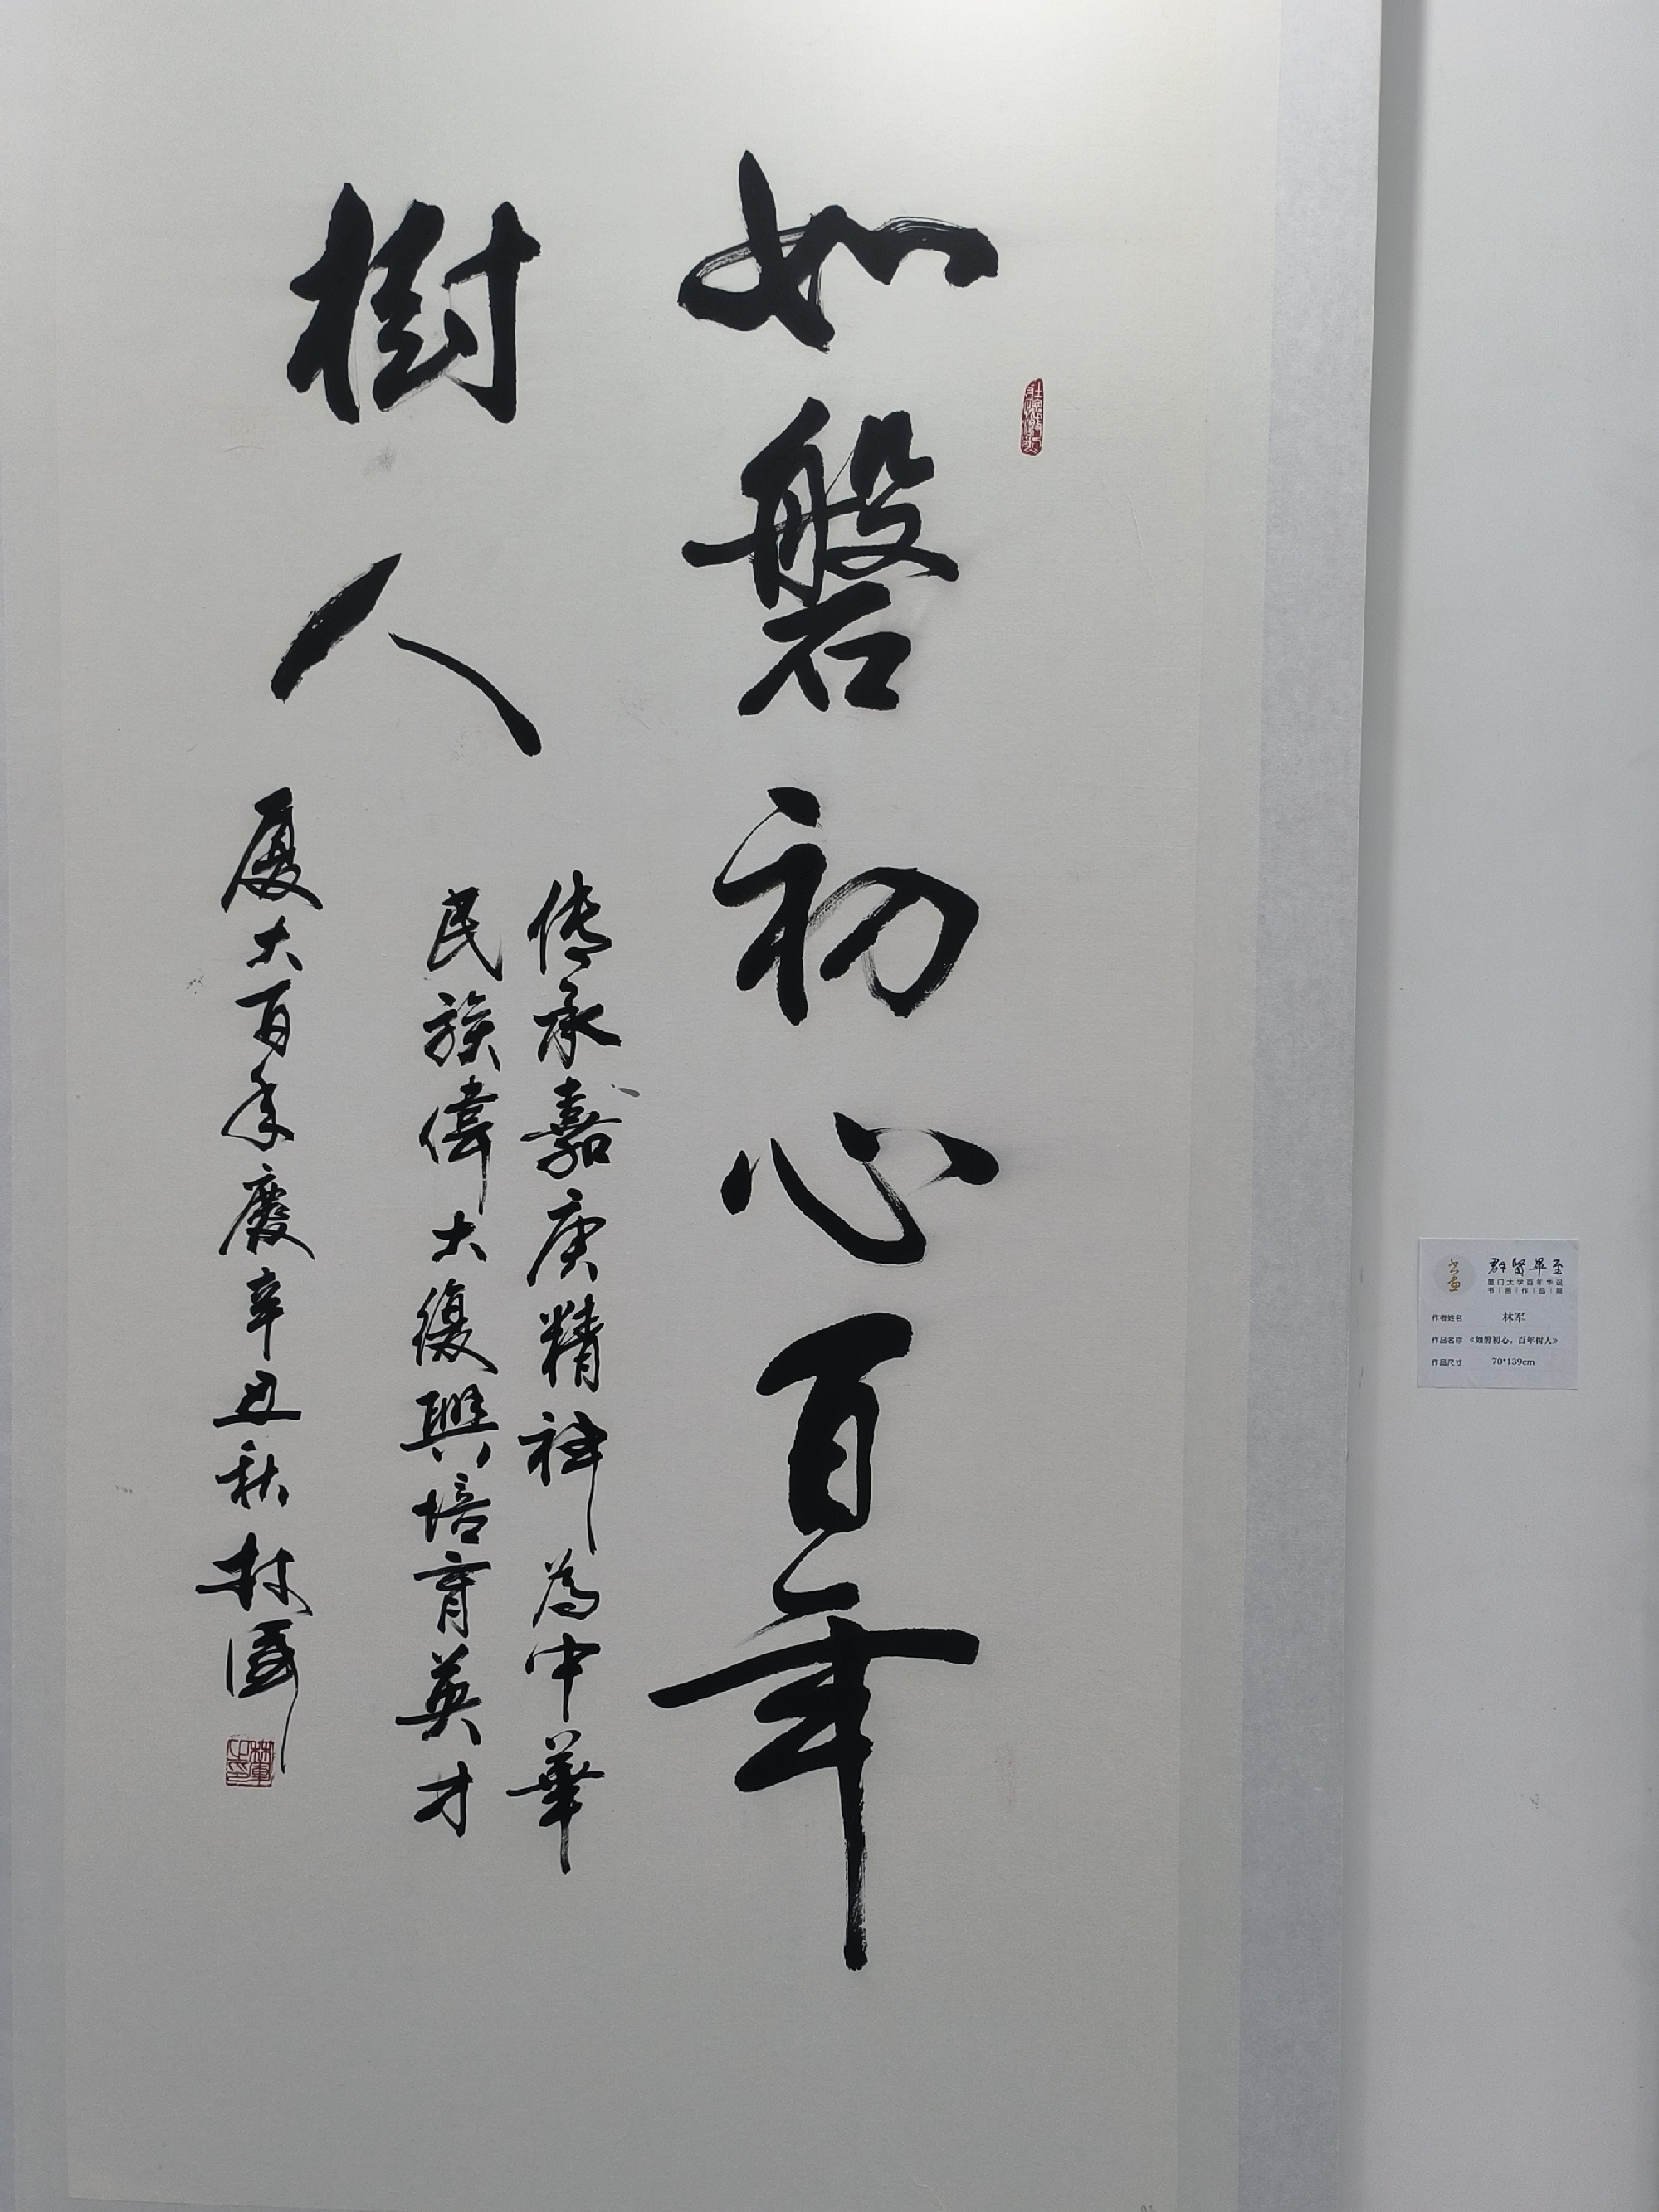 如磐初心百年
樹人
传承嘉庚精神為中華
民族偉大復興培育英才
厦大百年慶辛丑秋林軍
林軍
群贤畢至
厦门大学百年华诞
书|画|作|品|展
作者姓名 林军
作品名称 《如磐初心，百年树人》
作品尺寸 70*139cm